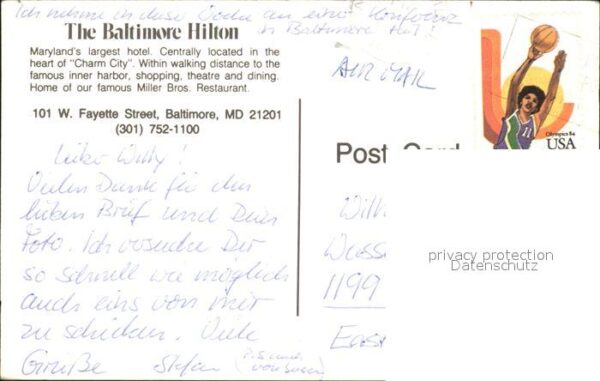 Ich nehme in dieser Woche an einer Konferenz
in Baltimore teil!
The Baltimore Hilton
Maryland's largest hotel. Centrally located in the
heart of "Charm City". Within walking distance to the
famous inner harbor, shopping, theatre and dining.
Home of our famous Miller Bros. Restaurant.
101 W. Fayette Street, Baltimore, MD 21201
(301) 752-1100
AIR MAIL
Olympics 84
USA
Post Card
Lieber Willy!
Vielen Dank für den
lieben Brief und Dein
Foto. Ich versuche Dir
so schnell wie möglich
auch eins von mir
zu schicken. Viele
Grüße Stefan
Wilh
1199
East
privacy protection
Datenschutz